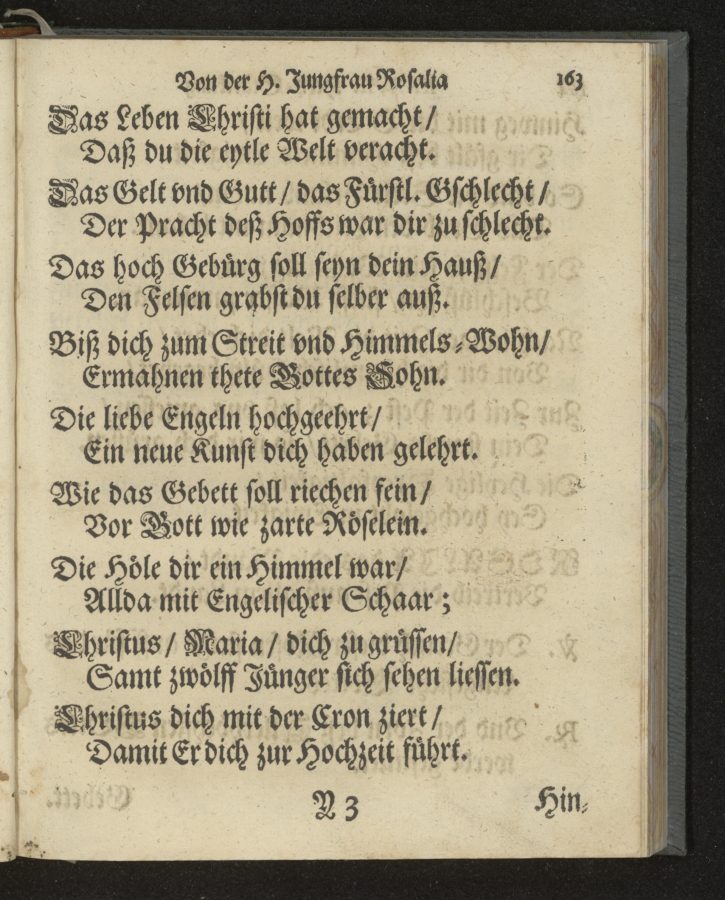 Von der H. Jungfrau Rosalia 163
Das Leben Christi hat gemacht /
Daß du die eytle Welt veracht.
Das Gelt vnd Gutt / das Fürstl. Gschlecht /
Der Pracht deß Hoffs war dir zu schlecht.
Das hoch Gebürg soll seyn dein Hauß /
Den Felsen grabst du selber auß.
Biß dich zum Streit vnd Himmels-Wohn /
Ermahnen thete Gottes Sohn.
Die liebe Engeln hochgeehrt /
Ein neue Kunst dich haben gelehrt.
Wie das Gebett soll riechen fein /
Vor Gott wie zarte Röselein.
Die Höle dir ein Himmel war /
Allda mit Engelischer Schaar ;
Christus / Maria / dich zu grüssen /
Samt zwölff Jünger sich sehen liessen.
Christus dich mit der Cron ziert /
Damit Er dich zur Hochzeit führt.
N 3 Hin-